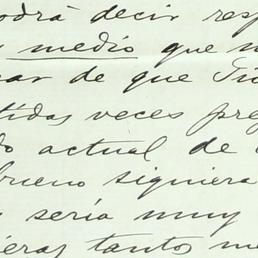 podrá decir resp
medio que n
ar de que Tu
tidas veces pre
do actual de
bueno siguiera
sería muy
ieras tantos me